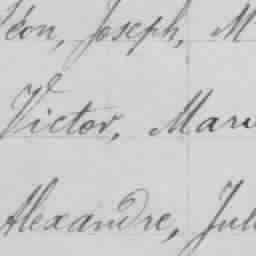 Léon, Joseph, M
Victor, Mari
Alexandre, Jul